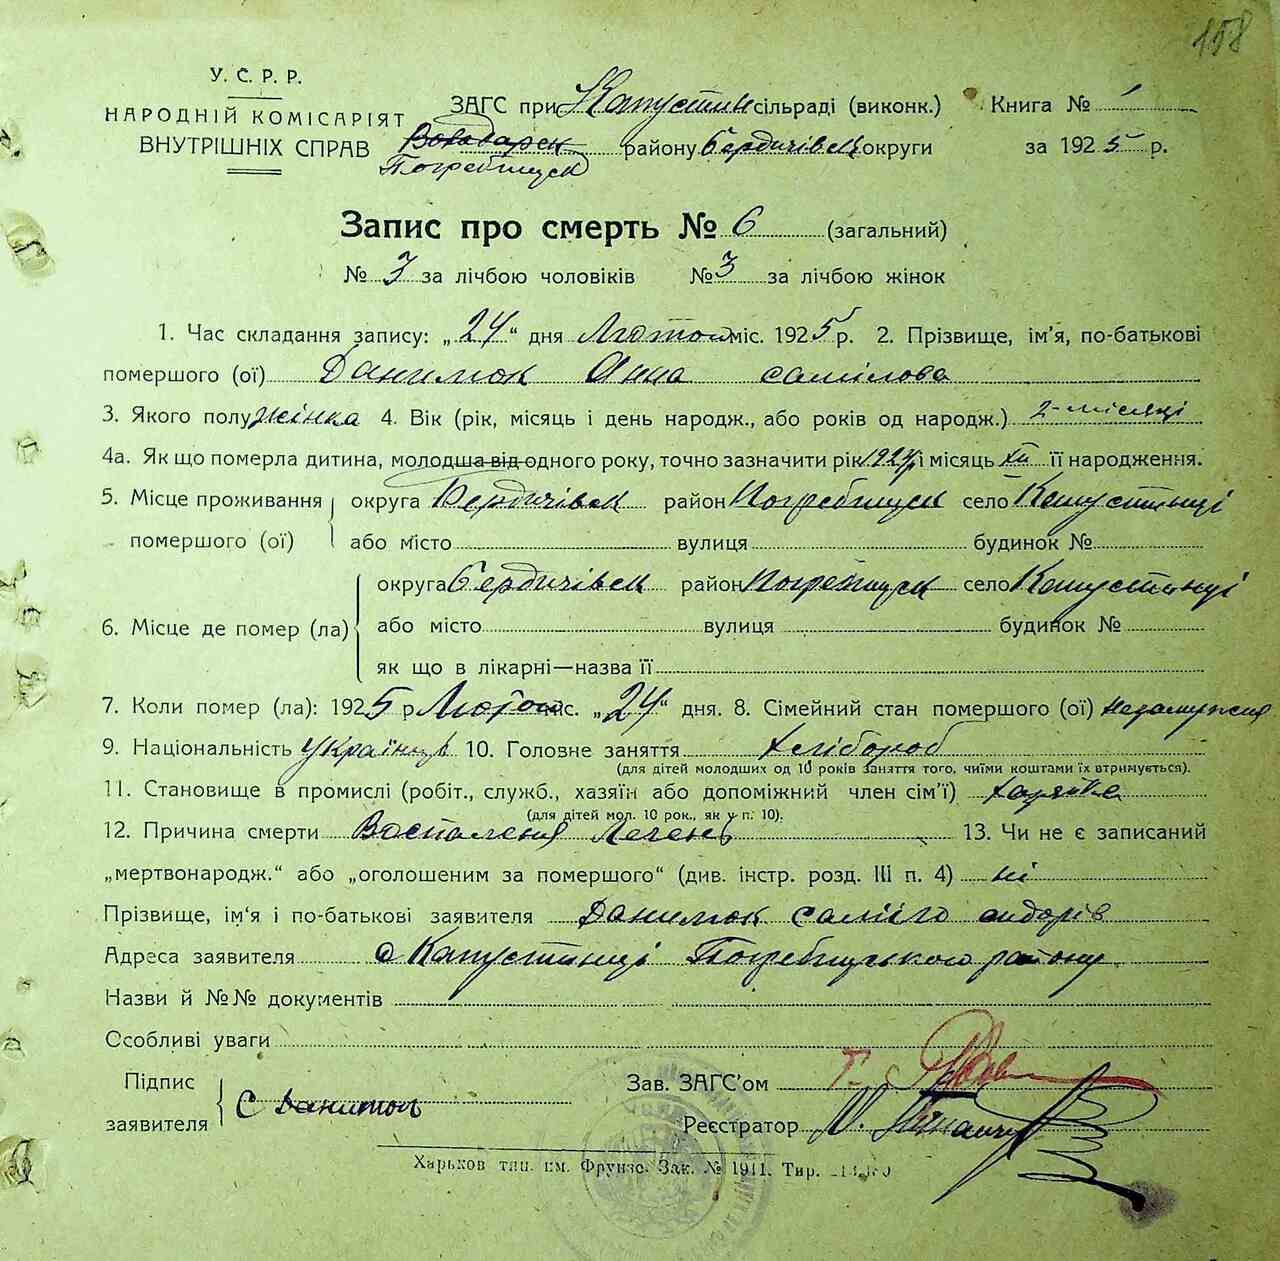 158
У. С. Р. Р.
НАРОДНІЙ КОМІСАРІЯТ
ВНУТРІШНІХ СПРАВ
ЗАГС при Капустин сільраді (виконк.) Книга № 1
Володарск району Бердичівск округи за 1925 р.
Погребищск
Запис про смерть № 6 (загальний)
№ 3 за лічбою чоловіків № 3 за лічбою жінок
1. Час складання запису: „24“ дня Лютого міс. 1925 р. 2. Прізвище, ім'я, по-батькові
помершого (ої) Данимюк Анна самілова
3. Якого полу жінка 4. Вік (рік, місяць і день народж., або років од народж.) 2-місяці
4а. Як що померла дитина, молодша від одного року, точно зазначити рік 1924 і місяць XII її народження.
5. Місце проживання округа Бердичівск район Погребищск село Капустинці
помершого (ої) або місто вулиця будинок №
округа Бердичівск район Погребищск село Капустинці
6. Місце де помер (ла) або місто вулиця будинок №
як що в лікарні—назва її
7. Коли помер (ла): 1925 р Лютого міс. „24“ дня. 8. Сімейний стан помершого (ої) незамужня
9. Національність Українців 10. Головне заняття хлібороб
(для дітей молодших од 10 років заняття того, чиїми коштами їх втримується).
11. Становище в промислі (робіт., служб., хазяїн або допоміжний член сім'ї)
(для дітей мол. 10 рок., як у п. 10).
12. Причина смерти Воспаления Легенів 13. Чи не є записаний
„мертвонародж.“ або „оголошеним за помершого“ (див. інстр. розд. III п. 4) ні
Прізвище, ім'я і по-батькові заявителя Данимюк
Адреса заявителя с Капустинці Погребищського району
Назви й №№ документів
Особливі уваги
Підпис
заявителя С Данимюк
Зав. ЗАГС'ом
Реєстратор
Харьков тип. им. Фрунзе. Зак. № 1911. Тир.